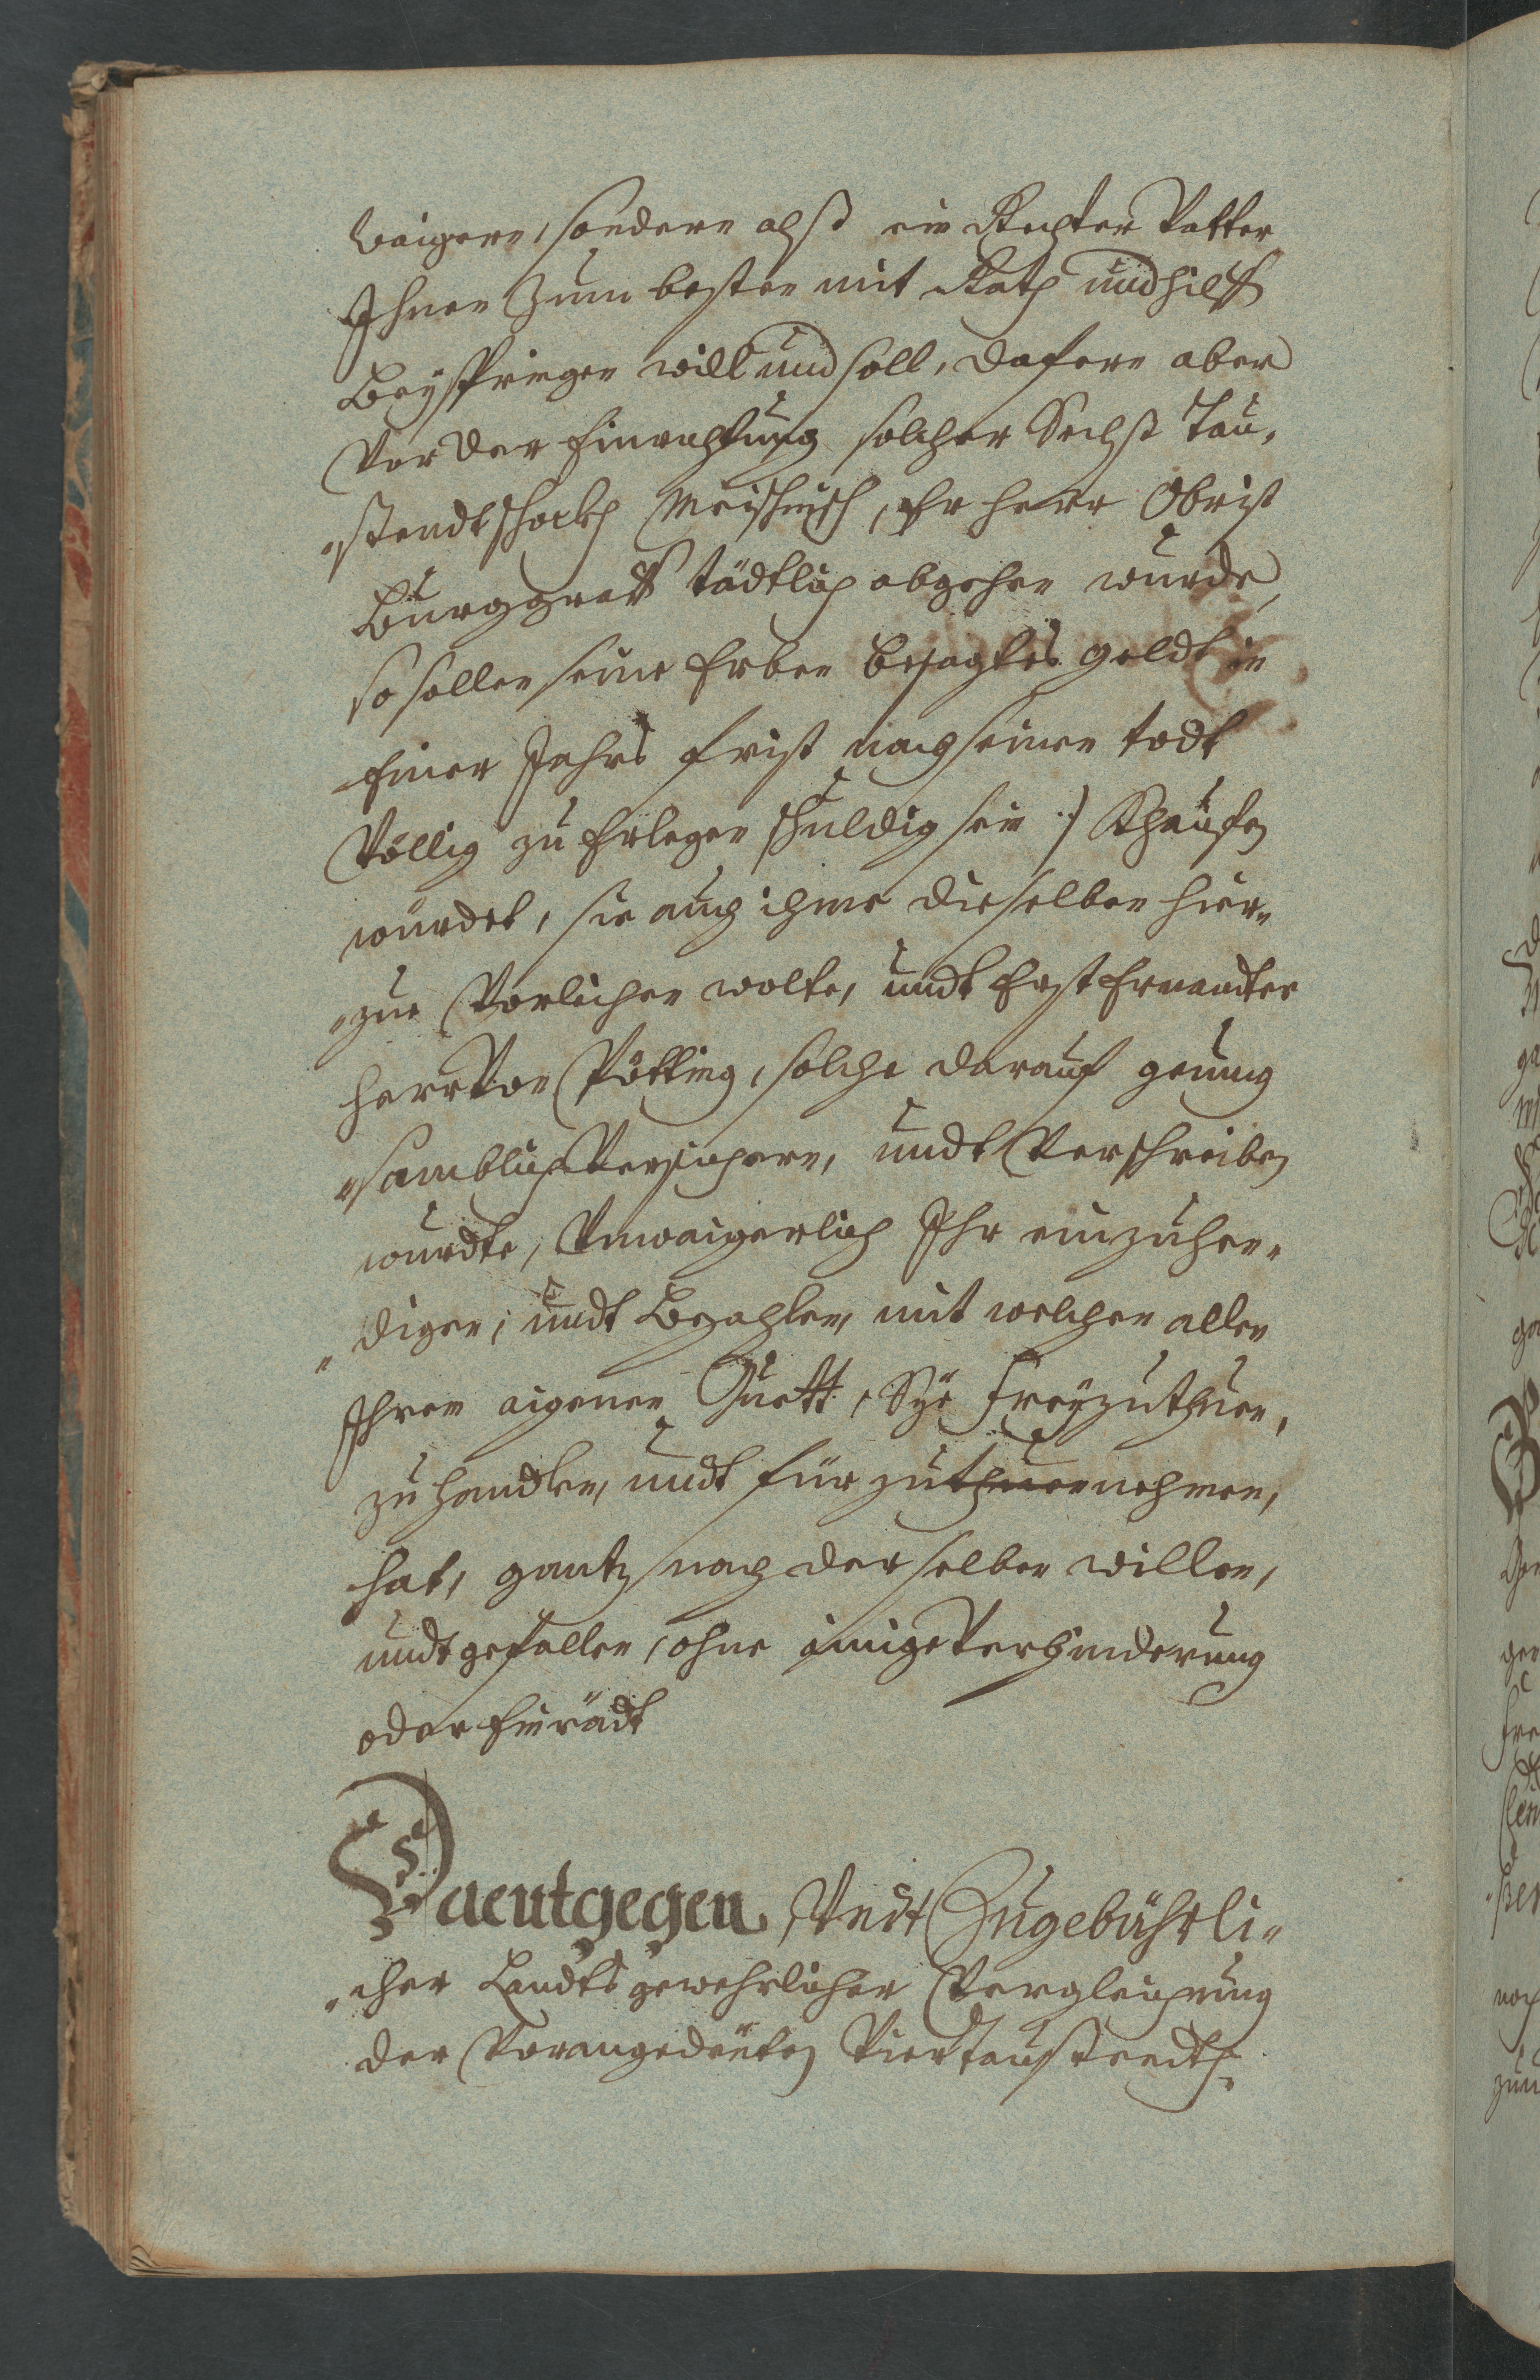 waigern, sondern alß ein Rechter Vatter
Ihnen Zum besten mit Rath und hilff
Beyspringen will und soll, dafern aber
Vor der Einrahtung solcher Sechß Tau„
„ßendt schockh Meischnisch, Er Herr Obrist
Burggraff tödtlich abgehen wurde,
so sollen seine Erben besagtes geldt in
Einer Jahrs frist nach seinen todt
Völlig zu Erlegen schuldig sein :/ Khaufen
wurdet, sie auch ihme dieselben hier„
„zue Vorleihen wolte, undt Erst Ernandter
Herr Von Pötting, solche darauf genueg
„samblich Versichern, undt Verschreiben
wurdte, Vnwaigerlich Ihr einzuhen„
„digen, undt Bezahlen, mit welchen allen
Ihren aigenen Guett, Sye Frey zuthuen,
zu handlen, undt für zuthuen nehmen,
hat, gantz nach derselben willen,
undt gefallen, ohne ainige Verhinderung
oder Einrödt
Daentgegen Vndt Zugebührli„
„cher Landts gewehrlicher Vergleichung
der Vorangedeuten Viertaußendt